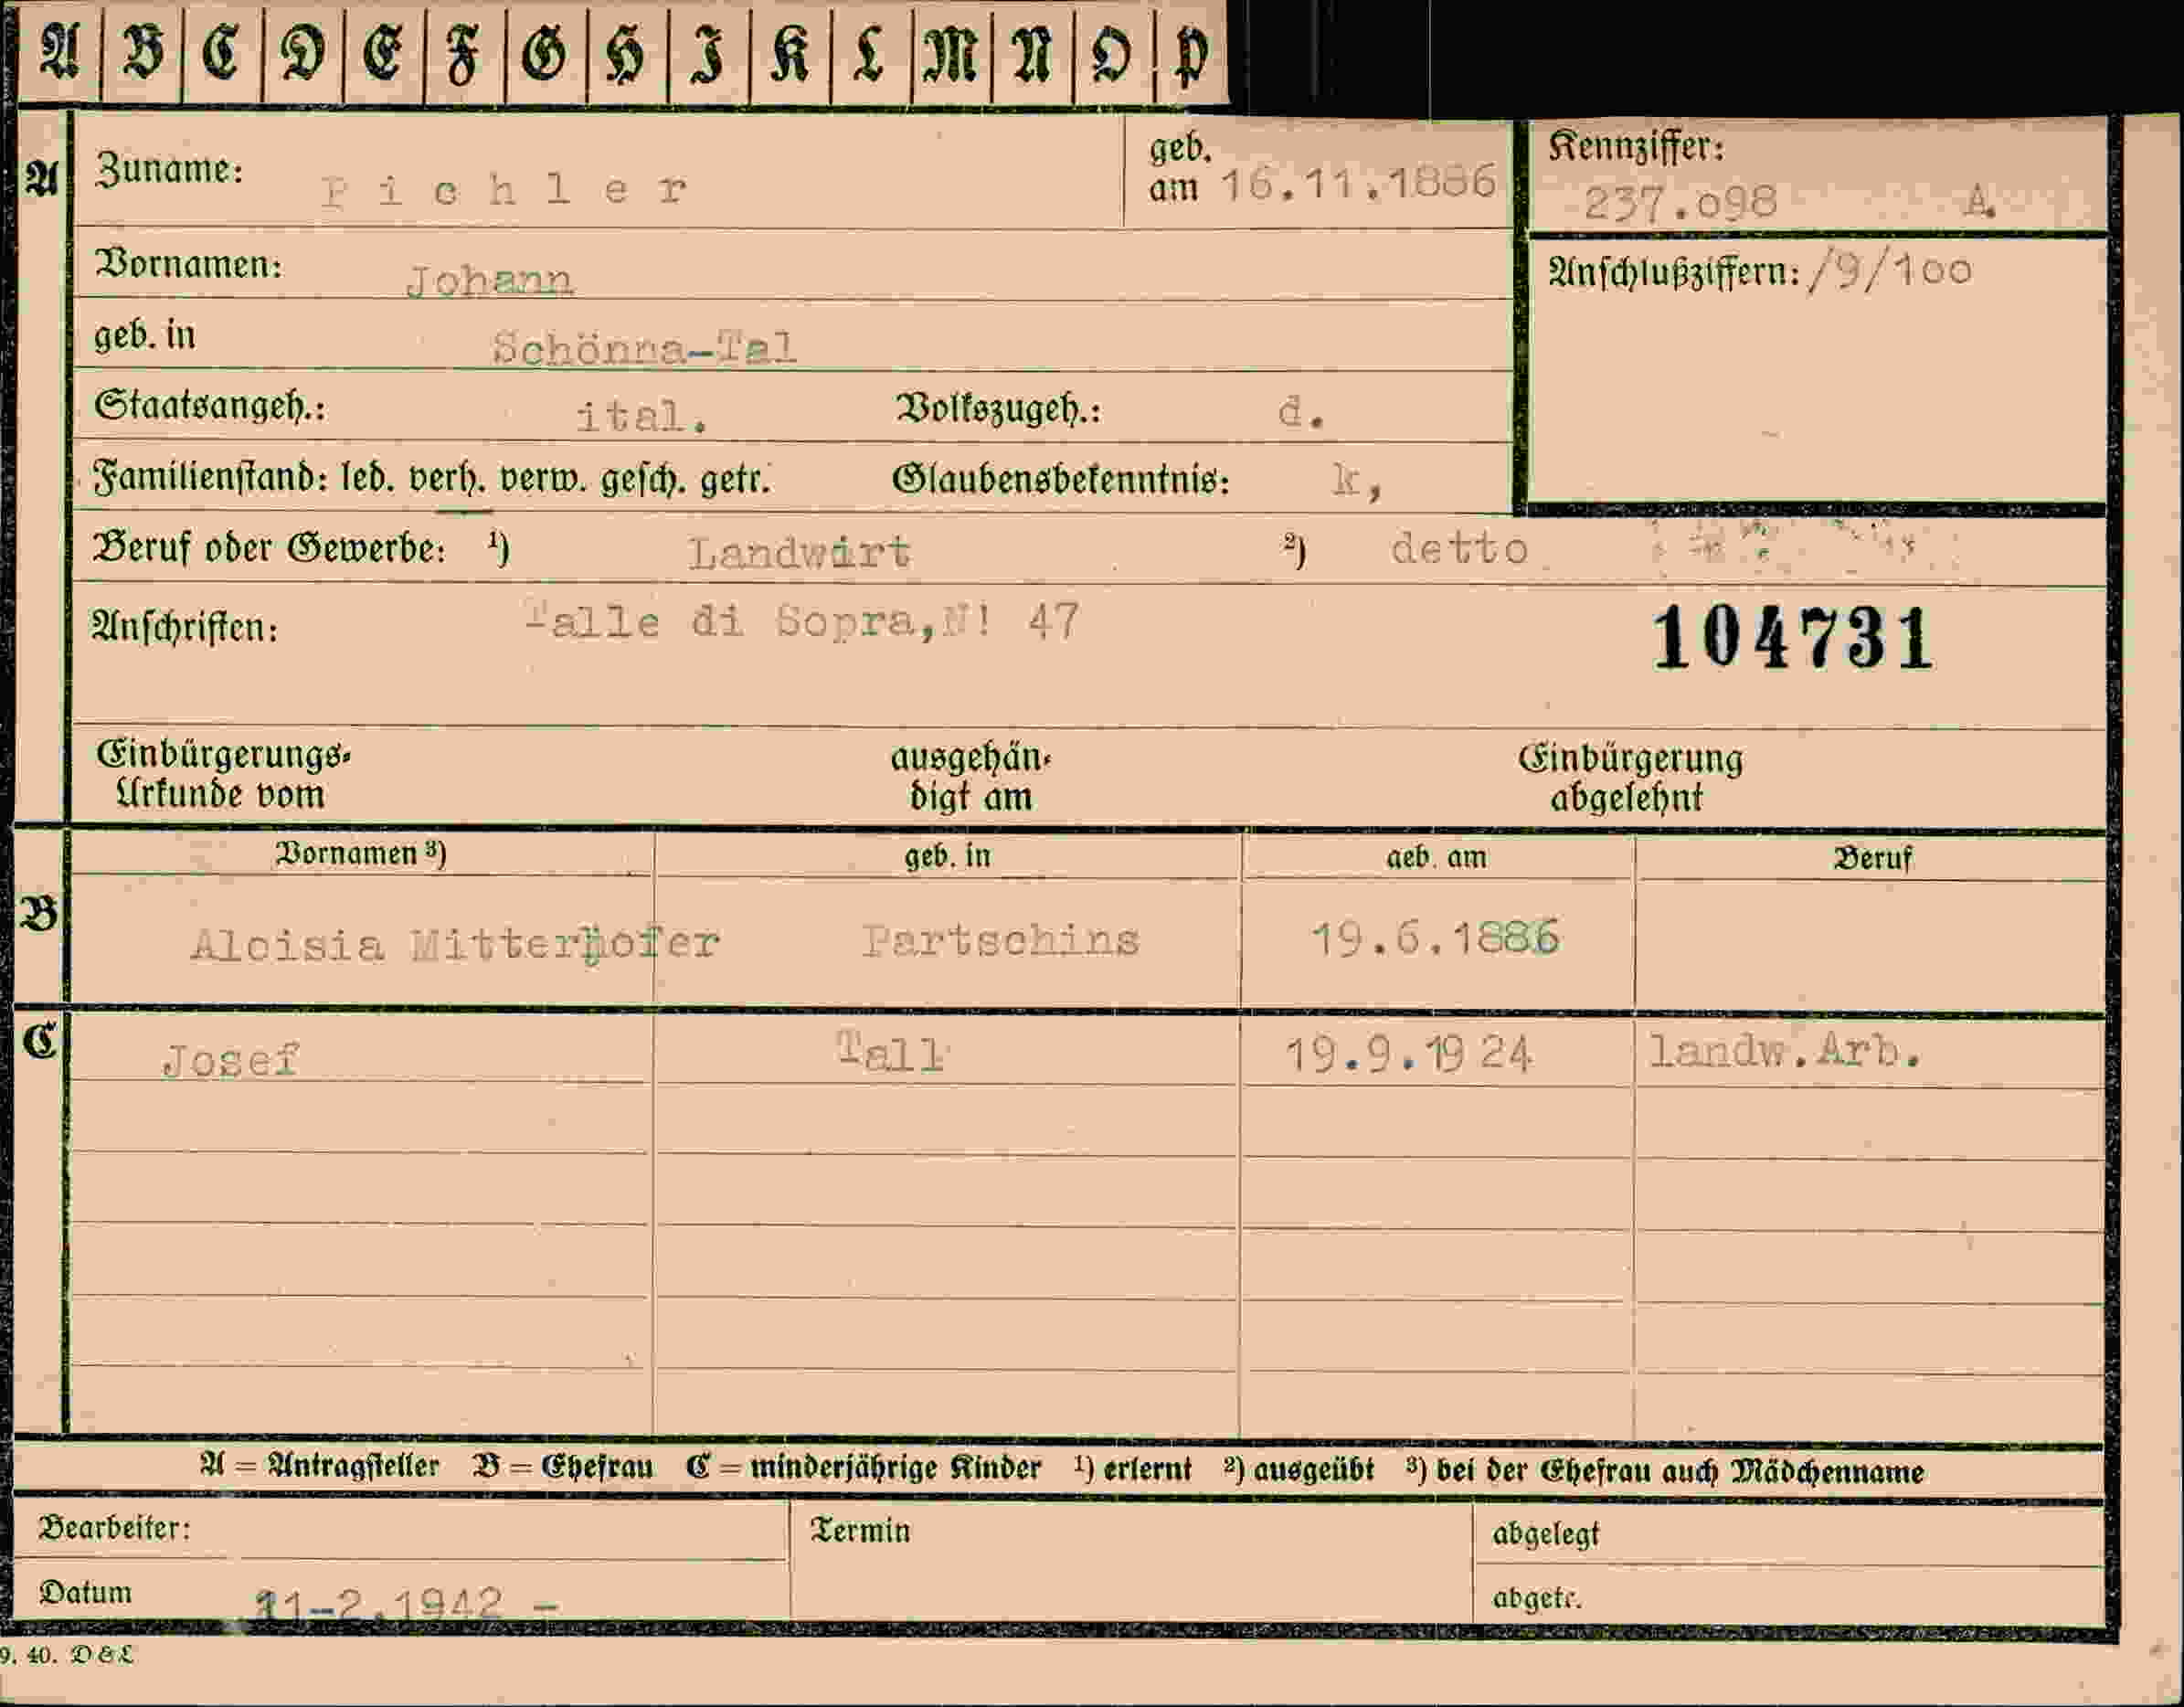 A B C D E F G H I K L M N O P
A Zuname: Pichler geb. am 16.11.1886 Kennziffer: 237.o98 A.
Vornamen: Johann Anschlußziffern: /9/1oo
geb. in Schönna-Tal
Staatsangeh.: ital. Volkszugeh.: d.
Familienstand: led. verh. verw. gesch. getr. Glaubensbekenntnis: k,
Beruf oder Gewerbe: ¹) Landwirt ²) detto
Anschriften: Talle di Sopra,N! 47 104731
Einbürgerungs- ausgehän- Einbürgerung
Urkunde vom digt am abgelehnt
Vornamen ³) geb. in geb. am Beruf
B Aloisia Mitterhofer Partschins 19.6.1886
C Josef Tall 19.9.1924 landw.Arb.
A = Antragsteller B = Ehefrau C = minderjährige Kinder ¹) erlernt ²) ausgeübt ³) bei der Ehefrau auch Mädchenname
Bearbeiter: Termin abgelegt
Datum 11-2.1942 - abgetr.
9. 40. D & L